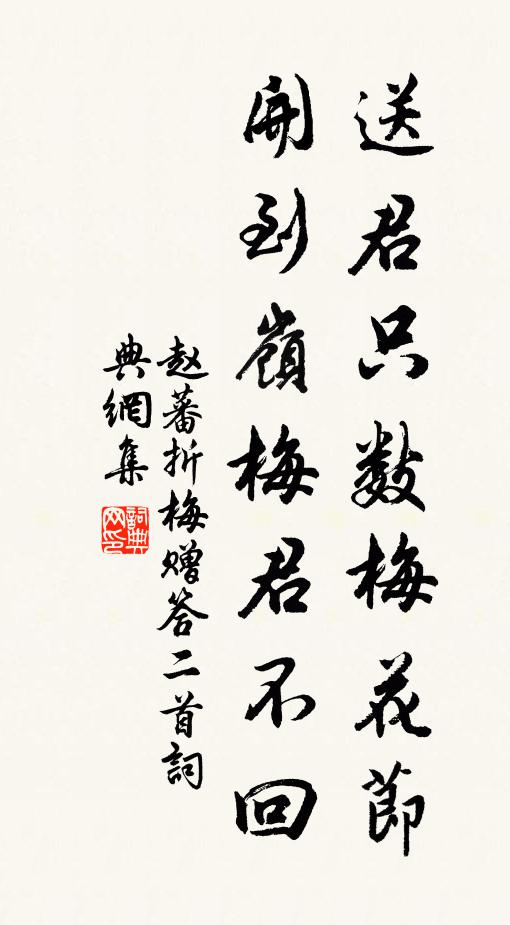 送君只数梅花節
開到嶺梅君不回
赵蕃折梅赠答二首詞
典網集
詞典网印